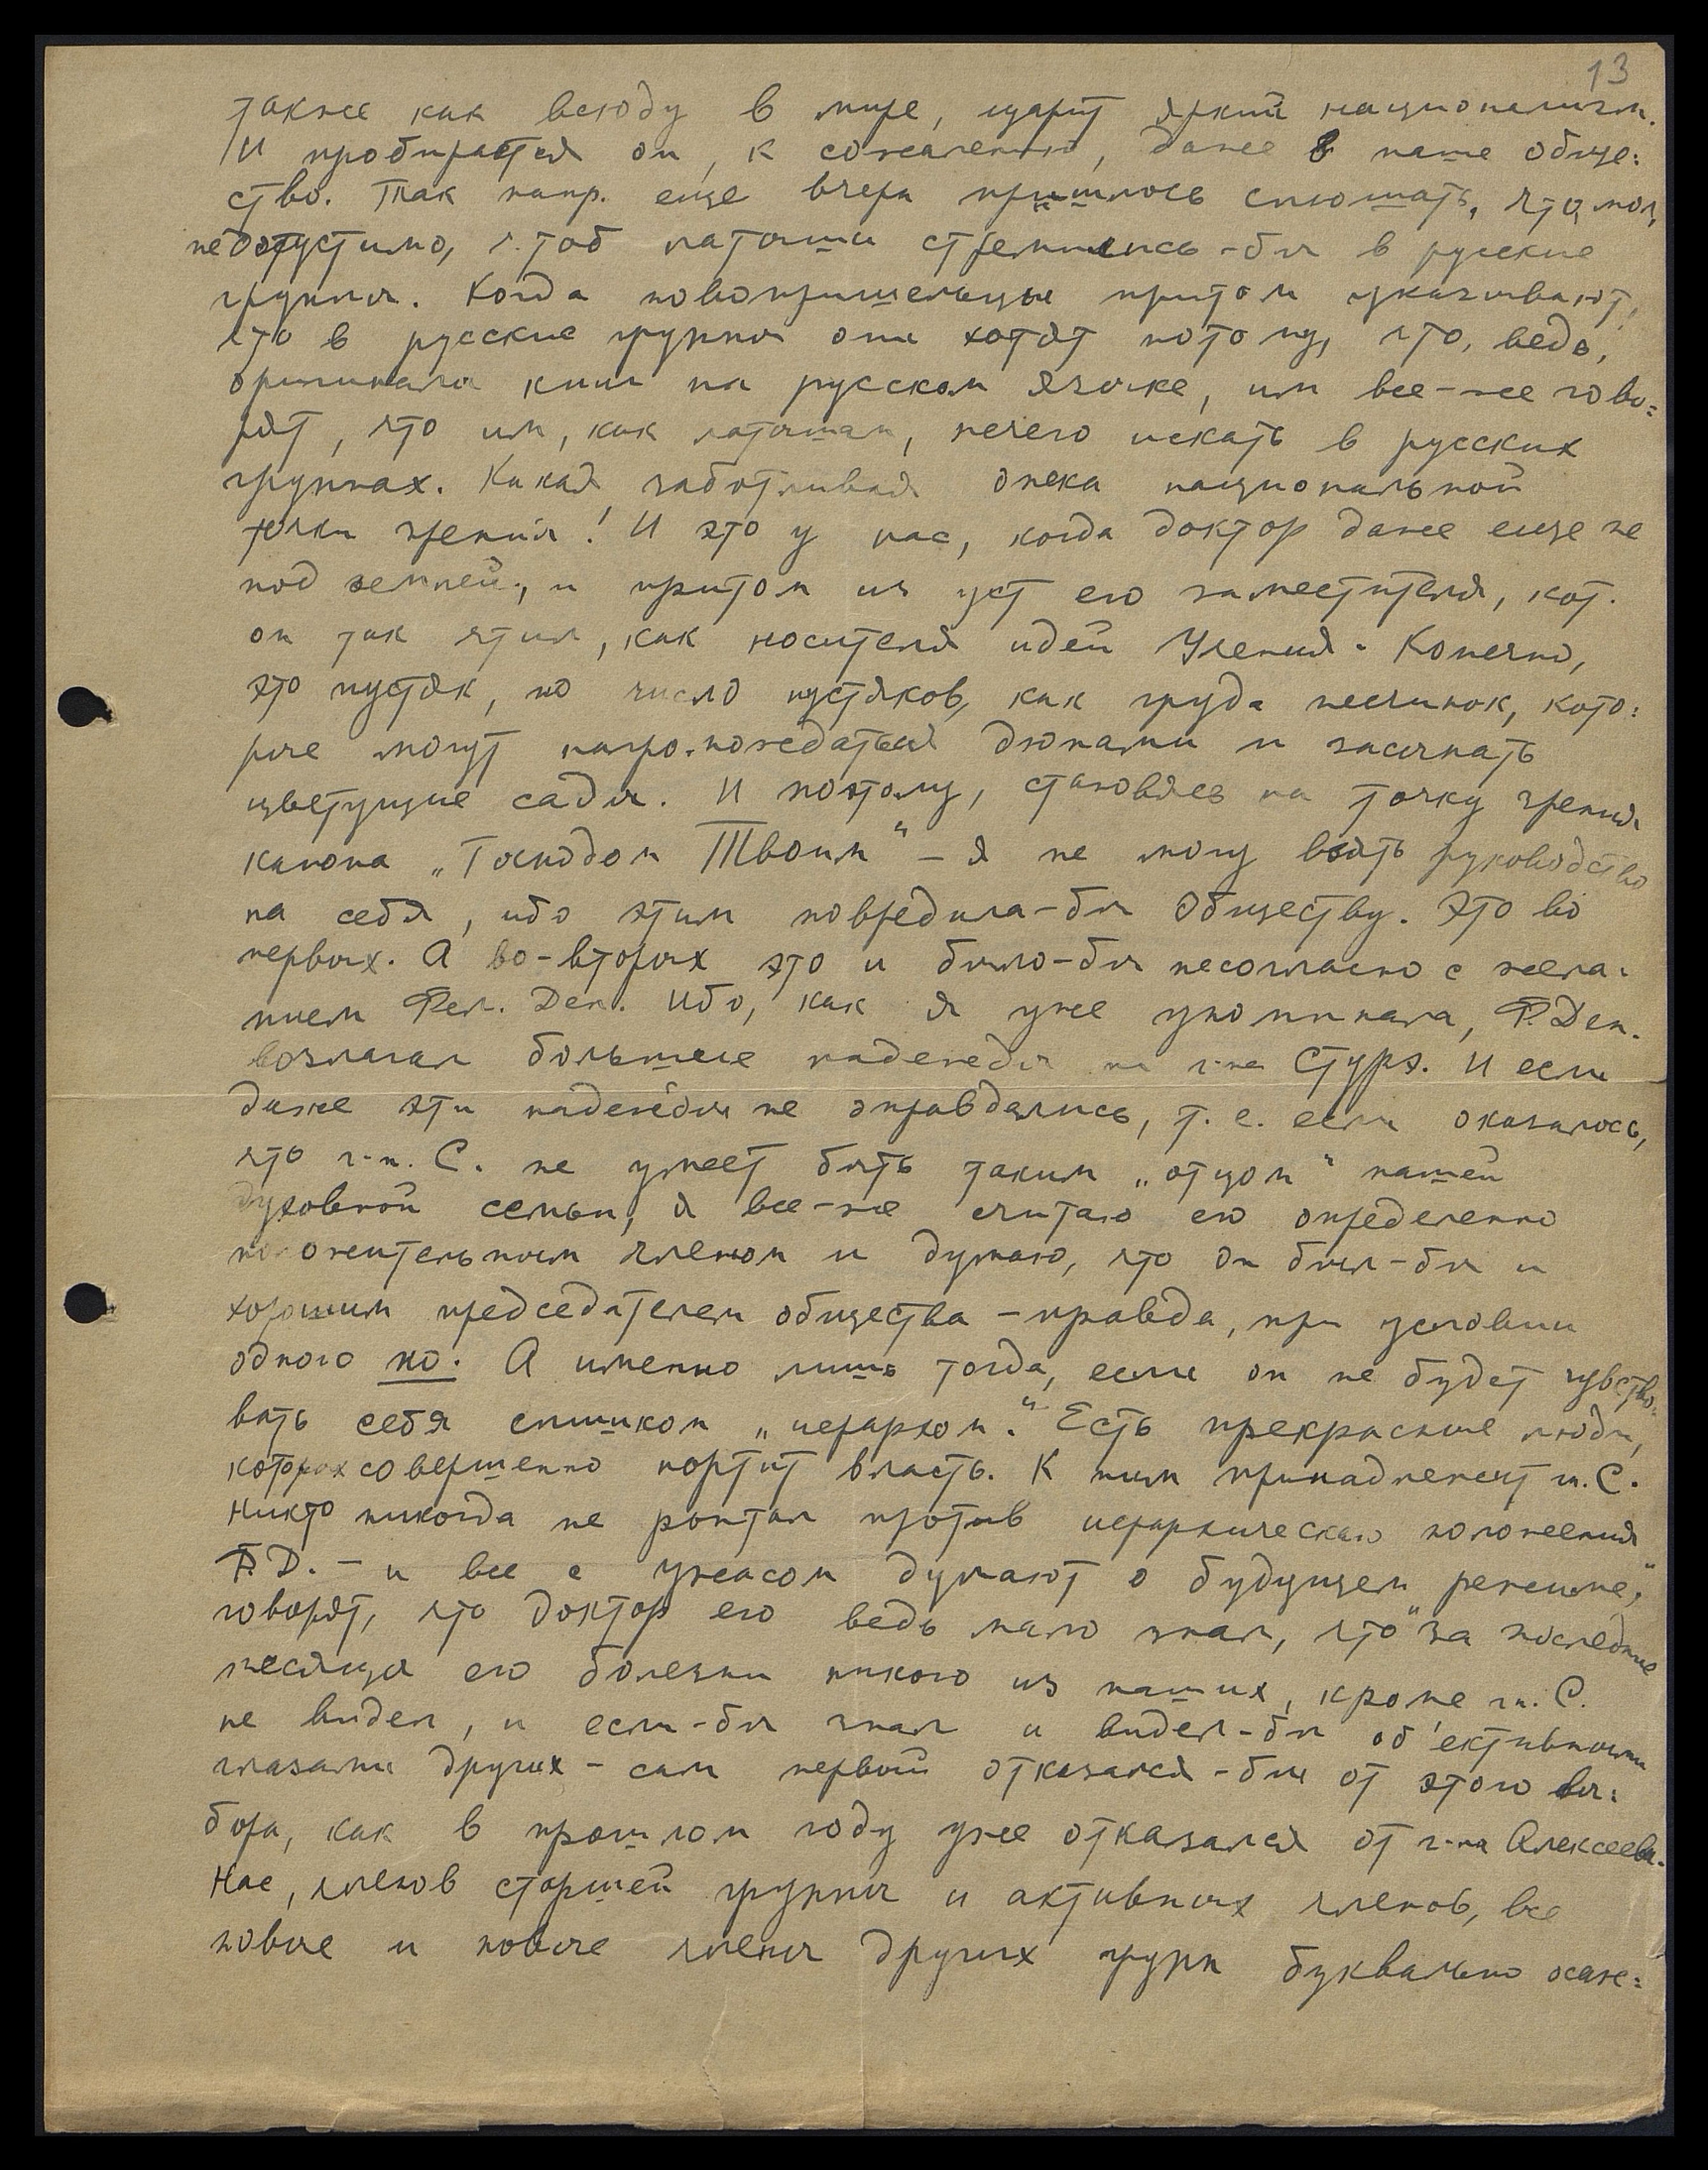 13
также как всюду в мире, царит яркий национализм.
И пробирается он, к сожалению, даже в наше обще=
ство. Так напр. еще вчера пришлось слюшать, что, мол,
недопустимо, чтоб латыши стремились-бы в русские
группы. Когда новопришельцы притом указывают,
что в русские группы они хотят потому, что, ведь,
оригинала книг на русском языке, им все-же гово=
рят, что им, как латышам, нечего искать в русских
группах. Какая заботливая опека национальной
точки зрения! И это у нас, когда доктор даже еще не
под землей, и притом из уст его заместителя, кот.
он так чтил, как носителя идей Учения. Конечно,
это пустяк, но число пустяков, как груда песчинок, кото=
рые могут нагромождаться дюнами и засыпать
цветущие сады. И поэтому, становясь на точку зрения
канона „Господом Твоим“ – я не могу взять руководство
на себя, ибо этим повредила-бы Обществу. Это во
первых. А во-вторых это и было-бы несогласно с жела=
нием Фел. Ден. Ибо, как я уже упоминала, Ф. Ден.
возлагал большие надежды на г-на Стурэ. И если
даже эти надежды не оправдались, т. е. если оказалось,
что г-н. С. не умеет быть таким „отцом“ нашей
духовной семьи, я все-же считаю его определенно
положительным членом и думаю, что он был-бы и
хорошим председателем общества – правда, при условии
одного но. А именно лишь тогда, если он не будет чувство=
вать себя слишком „иерархом“. Есть прекрасные люди,
которых совершенно портит власть. К ним принадлежит г. С.
Никто никогда не роптал против иерархического положения
Ф. Д. – и все с ужасом думают о будущем режиме,“
говорят, что доктор его ведь мало знал, что "за последние
месяцы его болезни никого из наших, кроме г. С.
не видел, и если-бы знал и видел-бы об'ективными
глазами других – сам первый отказался-бы от этого вы=
бора, как в прошлом году уже отказался от г-на Алексеева.
Нас, членов старшей группы и активных членов, все
новые и новые члены других групп буквально осаж=